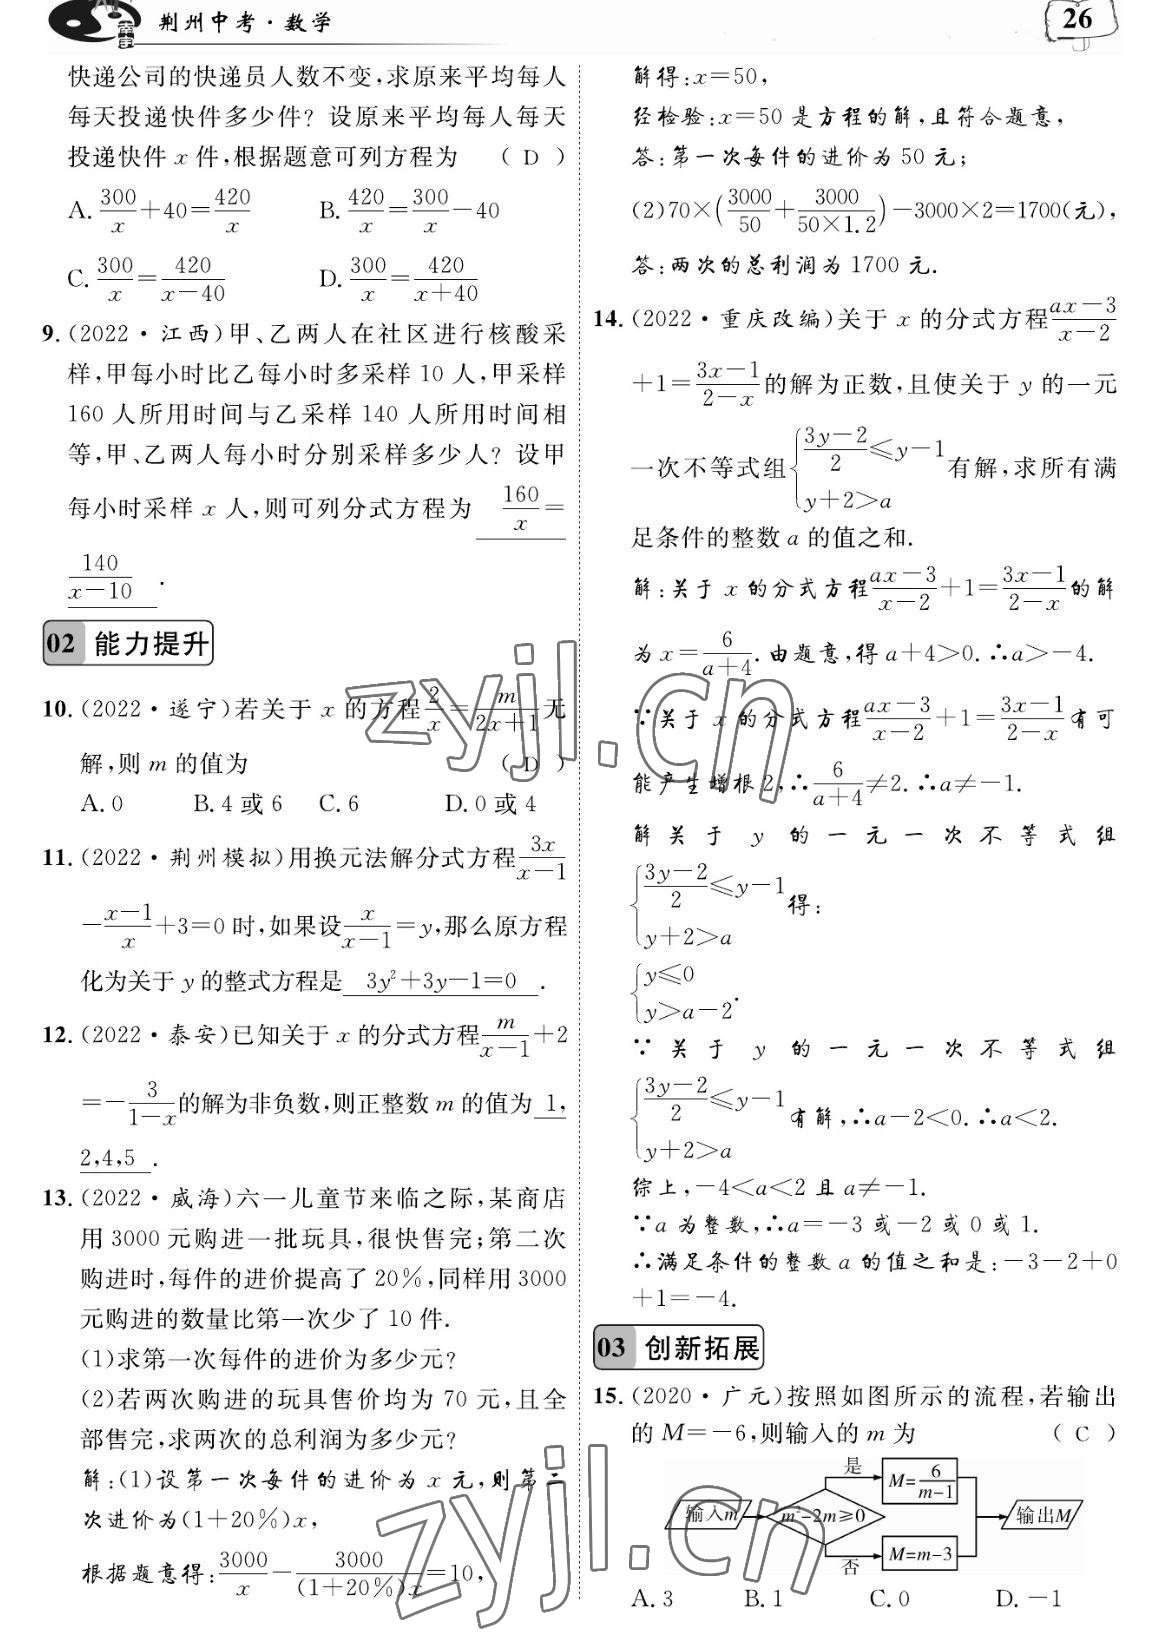 荆州中考·数学
26
快递公司的快递员人数不变,求原来平均每人
每天投递快件多少件? 设原来平均每人每天
投递快件 x 件,根据题意可列方程为 ( D )
A. 300/x+40=420/x B. 420/x=300/x-40
C. 300/x=420/(x-40) D. 300/x=420/(x+40)
9. (2022·江西)甲、乙两人在社区进行核酸采
样,甲每小时比乙每小时多采样 10 人,甲采样
160 人所用时间与乙采样 140 人所用时间相
等,甲、乙两人每小时分别采样多少人? 设甲
每小时采样 x 人,则可列分式方程为 160/x=
140/(x-10) .
02 能力提升
10. (2022·遂宁)若关于 x 的方程2/x=m/(2x+1)无
解,则 m 的值为 ( D )
A. 0 B. 4 或 6 C. 6 D. 0 或 4
11. (2022·荆州模拟)用换元法解分式方程3x/(x-1)
-(x-1)/x+3=0 时,如果设x/(x-1)=y,那么原方程
化为关于 y 的整式方程是 3y²+3y-1=0 .
12. (2022·泰安)已知关于 x 的分式方程m/(x-1)+2
=-3/(1-x)的解为非负数,则正整数 m 的值为 1,
2,4,5 .
13. (2022·威海)六一儿童节来临之际,某商店
用 3000 元购进一批玩具,很快售完;第二次
购进时,每件的进价提高了 20%,同样用 3000
元购进的数量比第一次少了 10 件.
(1)求第一次每件的进价为多少元?
(2)若两次购进的玩具售价均为 70 元,且全
部售完,求两次的总利润为多少元?
解:(1)设第一次每件的进价为 x 元,则第二
次进价为(1+20%)x,
根据题意得:3000/x-3000/((1+20%)x)=10,
解得:x=50,
经检验:x=50 是方程的解,且符合题意,
答:第一次每件的进价为 50 元;
(2)70×(3000/50+3000/(50×1.2))-3000×2=1700(元),
答:两次的总利润为 1700 元.
14. (2022·重庆改编)关于 x 的分式方程(ax-3)/(x-2)
+1=(3x-1)/(2-x)的解为正数,且使关于 y 的一元
一次不等式组{(3y-2)/2≤y-1 有解,求所有满
y+2>a
足条件的整数 a 的值之和.
解:关于 x 的分式方程(ax-3)/(x-2)+1=(3x-1)/(2-x)的解
为 x=6/(a+4).由题意,得 a+4>0.∴a>-4.
∵关于 x 的分式方程(ax-3)/(x-2)+1=(3x-1)/(2-x)有可
能产生增根 2,∴6/(a+4)≠2.∴a≠-1.
解关于 y 的一元一次不等式组
{(3y-2)/2≤y-1 得:
y+2>a
{y≤0
y>a-2.
∵关于 y 的一元一次不等式组
{(3y-2)/2≤y-1 有解,∴a-2<0.∴a<2.
y+2>a
综上,-4<a<2 且 a≠-1.
∵a 为整数,∴a=-3 或-2 或 0 或 1.
∴满足条件的整数 a 的值之和是:-3-2+0
+1=-4.
03 创新拓展
15. (2020·广元)按照如图所示的流程,若输出
的 M=-6,则输入的 m 为 ( C )
是
M=6/(m-1)
输入m
m²-2m≥0
输出M
否
M=m-3
A. 3 B. 1 C. 0 D. -1
zyjl.cn
zyjl.cn